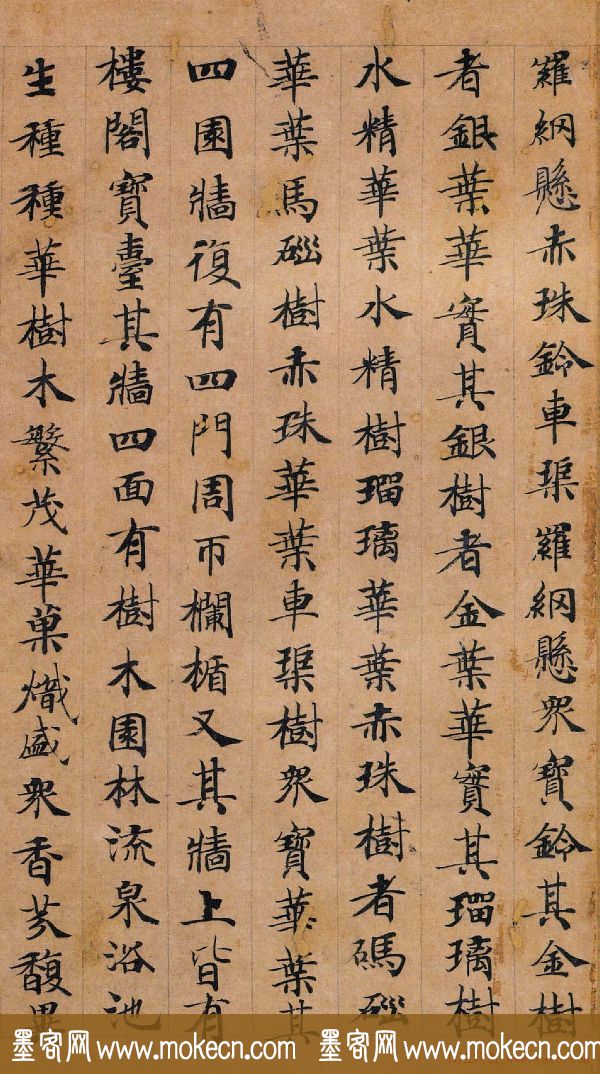 羅網懸赤珠鈴車𤦲羅網懸眾寶鈴其金樹
者銀葉華實其銀樹者金葉華實其瑠璃樹
水精華葉水精樹瑠璃華葉赤珠樹者碼碯
華葉馬碯樹赤珠華葉車𤦲樹眾寶華葉其
四園牆復有四門周帀欄楯又其牆上皆有
樓閣寶臺其牆四面有樹木園林流泉浴池
生種種華樹木繁茂華菓熾盛眾香芬馥異
墨客网 www.mokecn.com 墨客网 www.mokecn.com